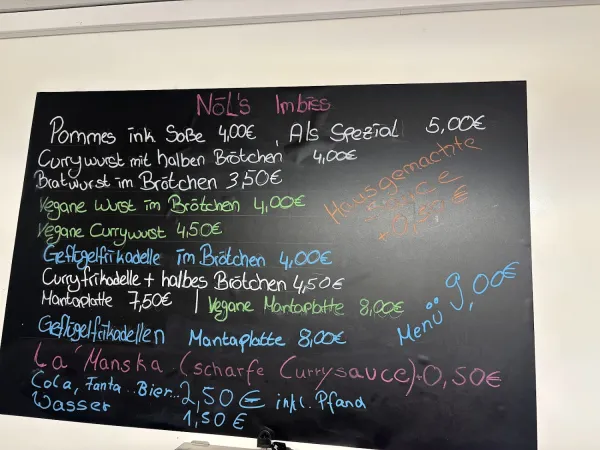 NÖL's Imbiss
Pommes ink Soße 4,00€, Als Spezial 5,00€
Currywurst mit halben Brötchen 4,00€
Bratwurst im Brötchen 3,50€
Vegane Wurst im Brötchen 4,00€
Vegane Currywurst 4,50€
Geflügelfrikadelle im Brötchen 4,00€
Curryfrikadelle + halbes Brötchen 4,50€
Mantaplatte 7,50€ | Vegane Mantaplatte 8,00€
Geflügelfrikadellen Mantaplatte 8,00€
La'Manska (scharfe Currysauce)+0,50€
Cola, Fanta..Bier.. 2,50€ inkl. Pfand
Wasser 1,50€
Hausgemachte
Menü 9,00€